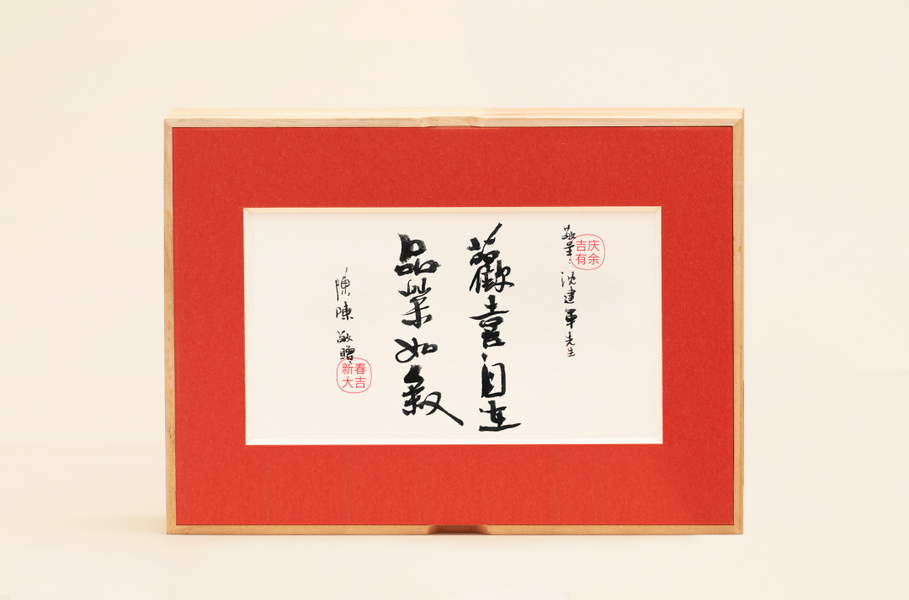 敬呈:
沈建軍先生
吉庆
有余
歡喜自
品茶如叙
陳陳 敬贈
新春
大吉